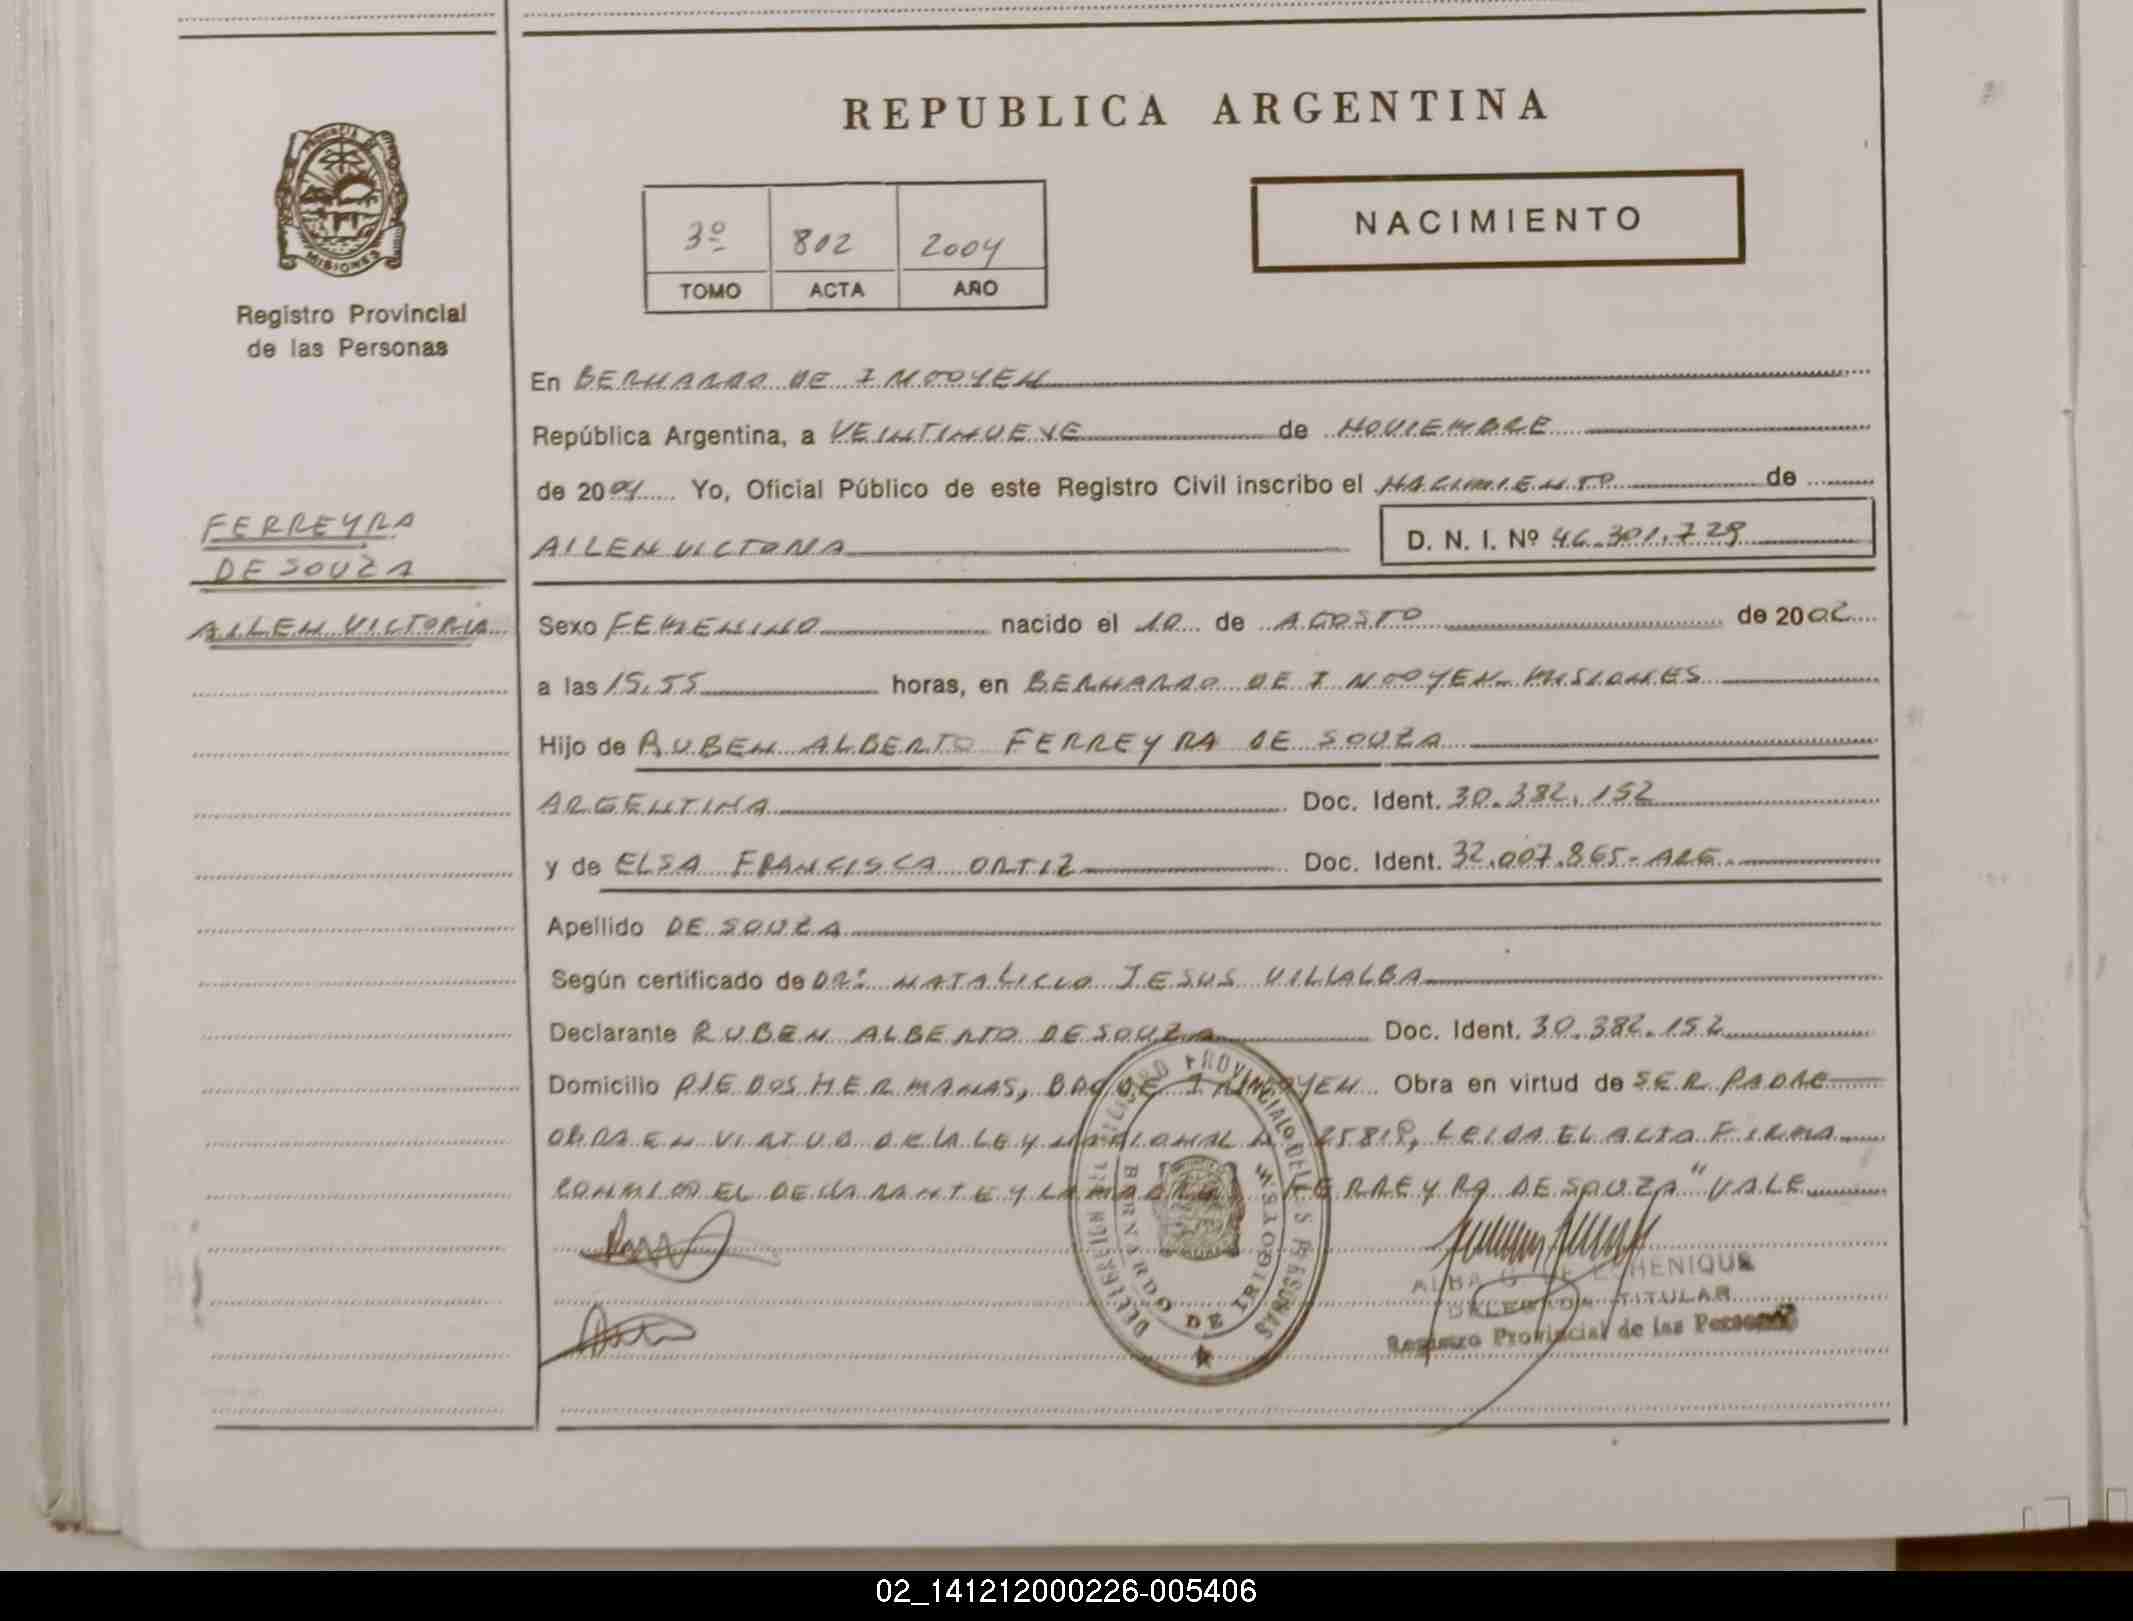 REPUBLICA ARGENTINA
PROVINCIA DE MISIONES
Registro Provincial
de las Personas
3º 802 2004
TOMO ACTA AÑO
NACIMIENTO
En BERNARDO DE IRIGOYEN
República Argentina, a VEINTINUEVE de NOVIEMBRE
de 2004 Yo, Oficial Público de este Registro Civil inscribo el NACIMIENTO de
FERREYRA
DE SOUZA
AILEN VICTORIA
AILEN VICTORIA D. N. I. Nº 46.301.729
Sexo FEMENINO nacido el 10 de AGOSTO de 2002
a las 15,55 horas, en BERNARDO DE IRIGOYEN-MISIONES
Hijo de RUBEN ALBERTO FERREYRA DE SOUZA
ARGENTINA Doc. Ident. 30.382.152
y de ELSA FRANCISCA ORTIZ Doc. Ident. 32.007.865-ARG.
Apellido DE SOUZA
Según certificado de DR: NATALICIO JESUS VILLALBA
Declarante RUBEN ALBERTO DE SOUZA Doc. Ident. 30.382.152
Domicilio PJE DOS HERMANAS, BDO DE IRIGOYEN Obra en virtud de SER PADRE
OBRA EN VIRTUD DE LA LEY NACIONAL Nº 25819, LEIDA EL ACTA FIRMA
CONMIGO EL DECLARANTE Y LA MADRE "FERREYRA DE SOUZA" VALE
REGISTRO PROVINCIAL DE LAS PERSONAS
BERNARDO DE IRIGOYEN
MISIONES
ALBA G DE ECHENIQUE
DELEGADA TITULAR
Registro Provincial de las Personas
02_141212000226-005406